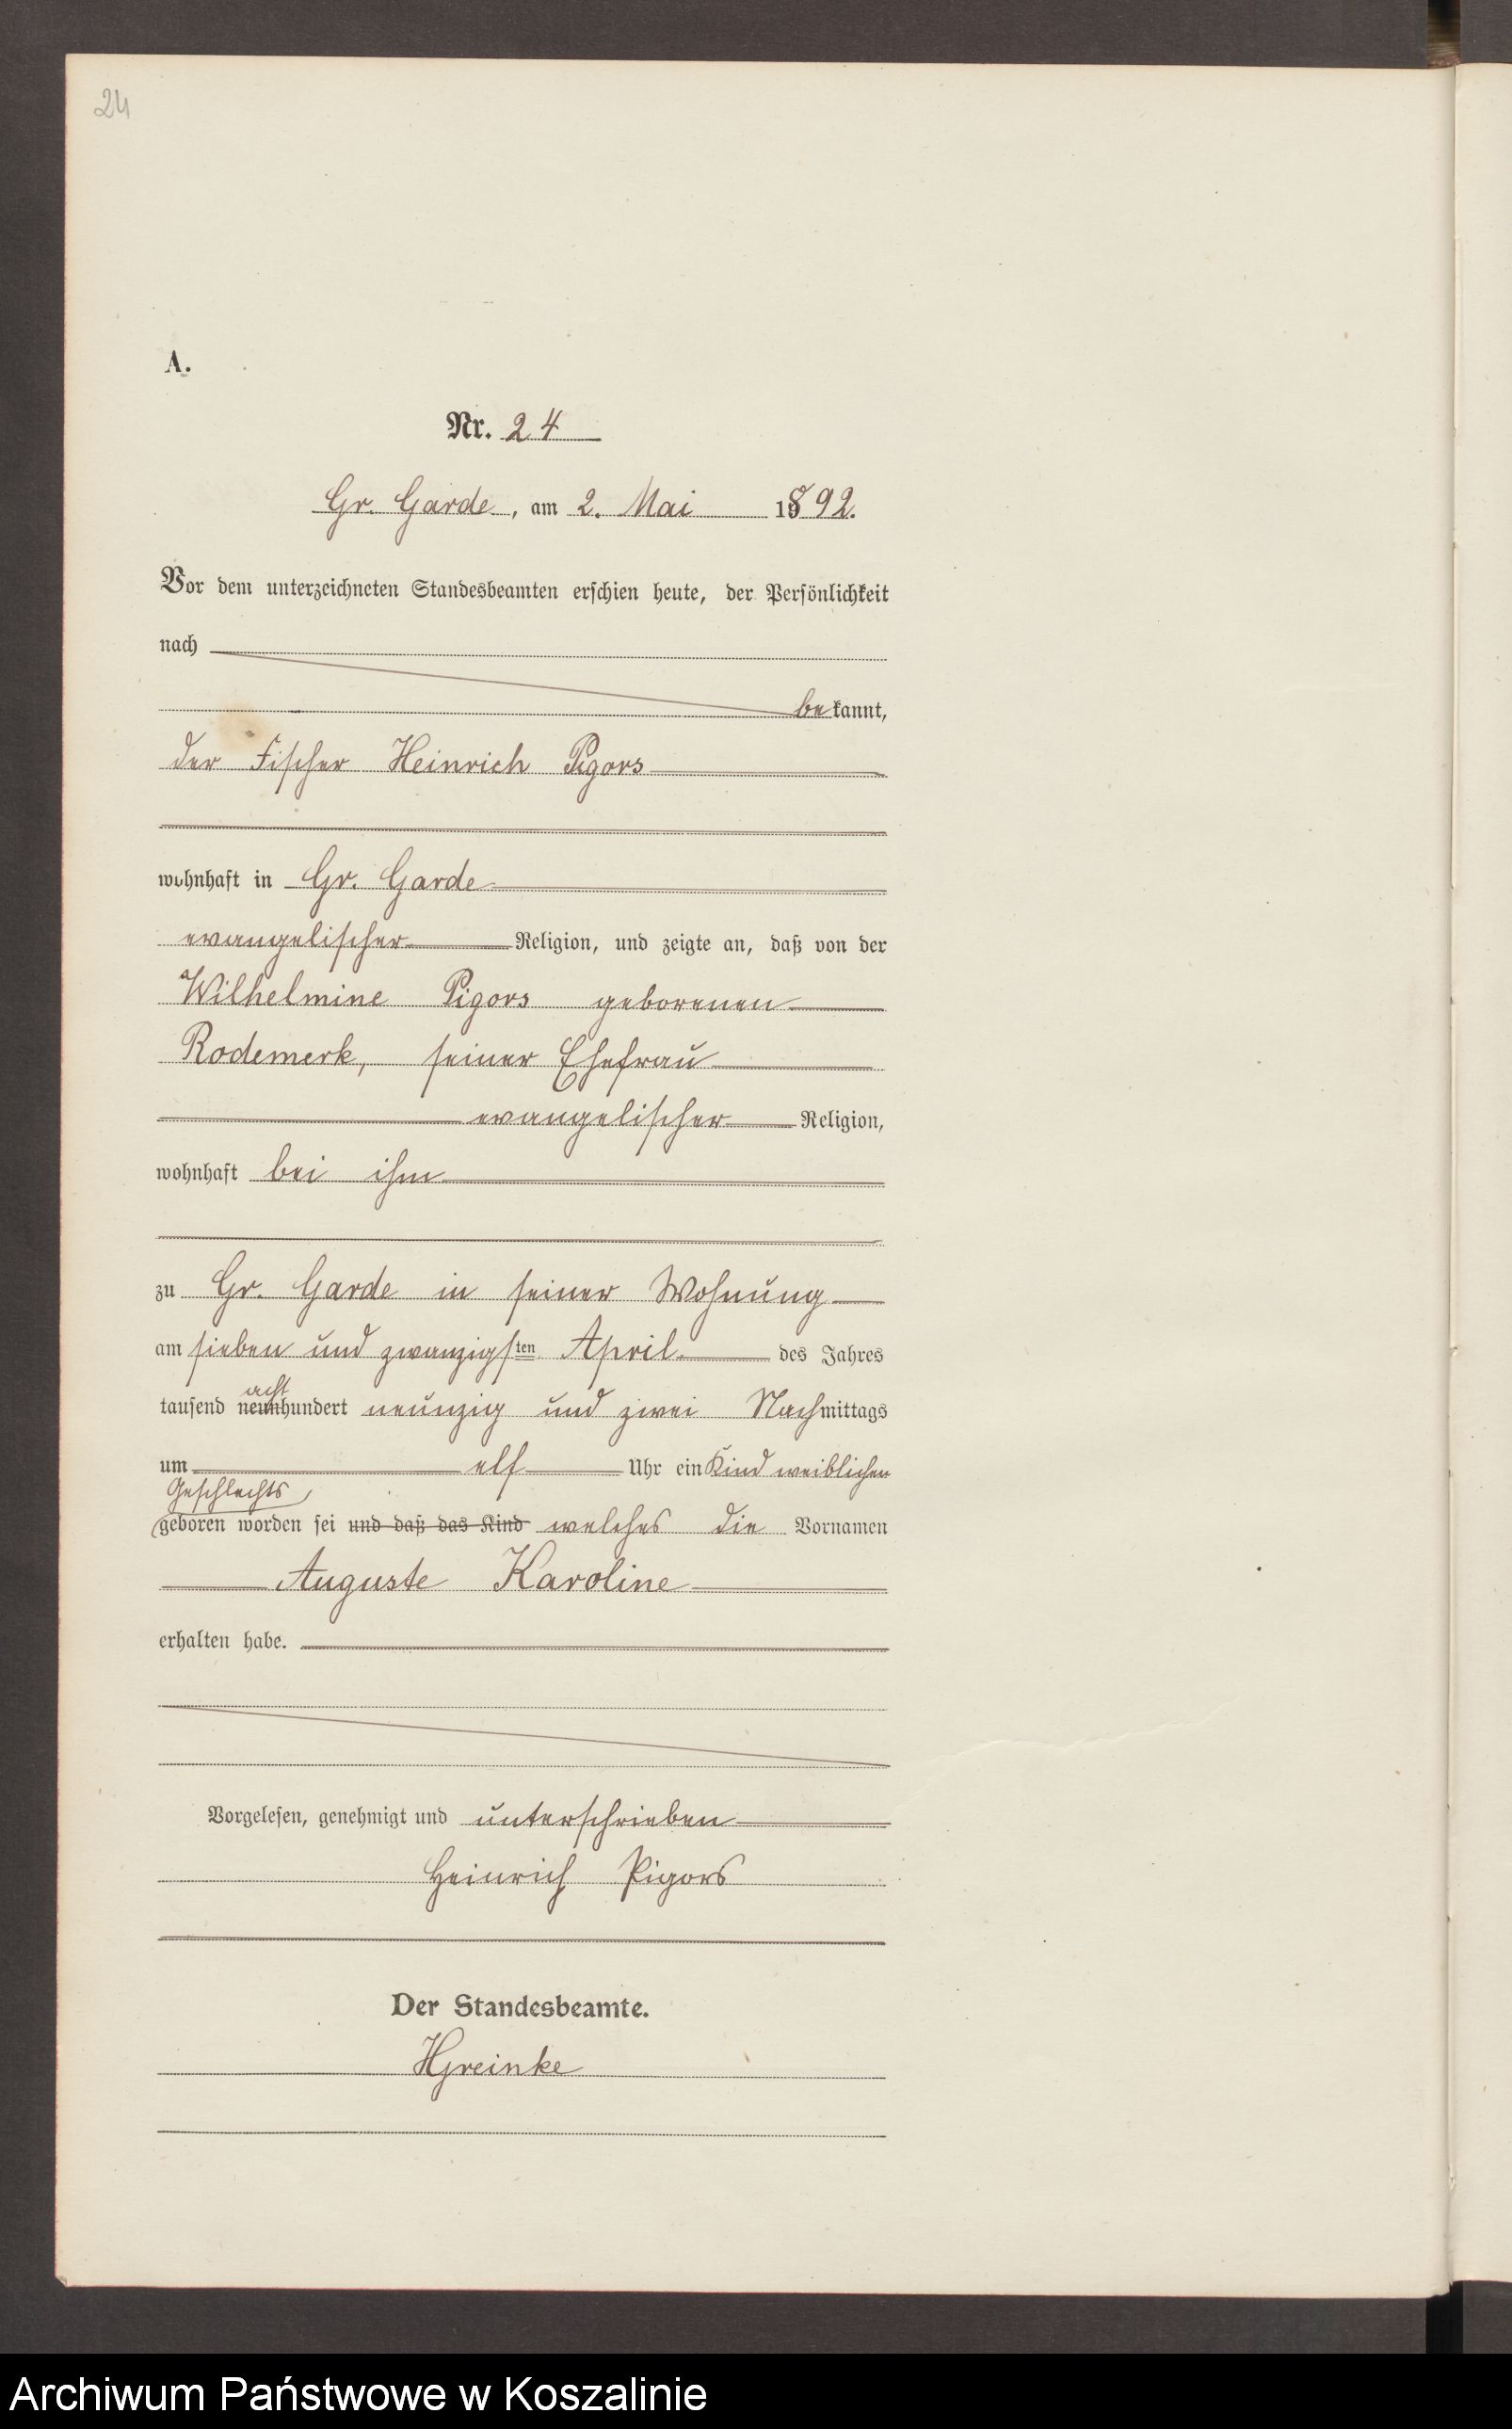 24
A.
Nr. 24
Gr. Garde, am 2. Mai 1892.
Vor dem unterzeichneten Standesbeamten erschien heute, der Persönlichkeit
nach
bekannt,
der Fischer Heinrich Pigors
wohnhaft in Gr. Garde
evangelischer Religion, und zeigte an, daß von der
Wilhelmine Pigors geborenen
Rodemerk, seiner Ehefrau
evangelischer Religion,
wohnhaft bei ihm
zu Gr. Garde in seiner Wohnung
am sieben und zwanzigsten April des Jahres
acht
tausend neunhundert neunzig und zwei Nachmittags
um elf Uhr ein Kind weiblichen
Geschlechts
geboren worden sei und daß das Kind welches die Vornamen
Auguste Karoline
erhalten habe.
Vorgelesen, genehmigt und unterschrieben
Heinrich Pigors
Der Standesbeamte.
HGreinke
Archiwum Państwowe w Koszalinie